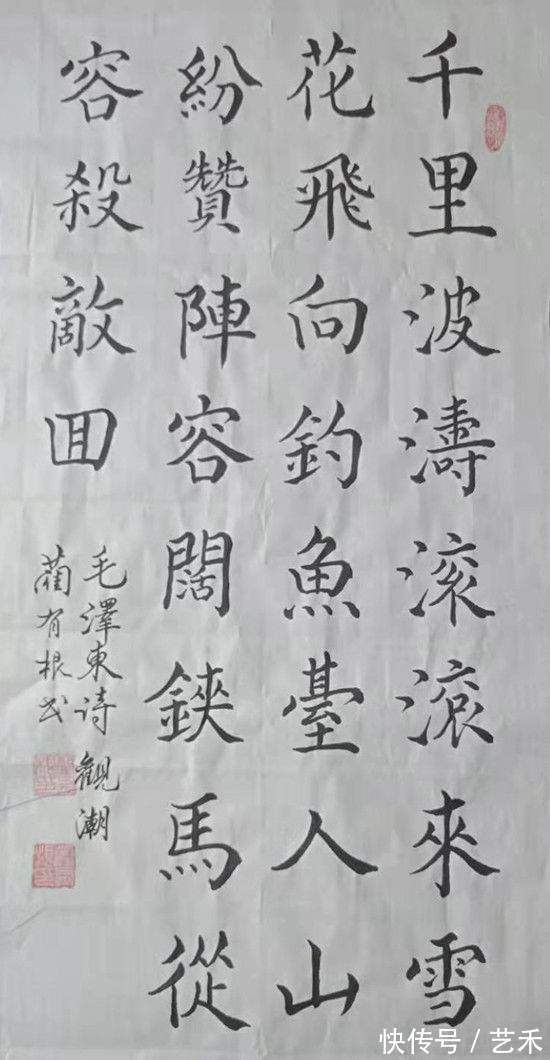 千里波濤滚滾來雪
花飛向釣魚臺人山
紛贊陣容闊鋏馬從
容殺敵囬
毛澤東诗觀潮
有根书
快传号／艺禾